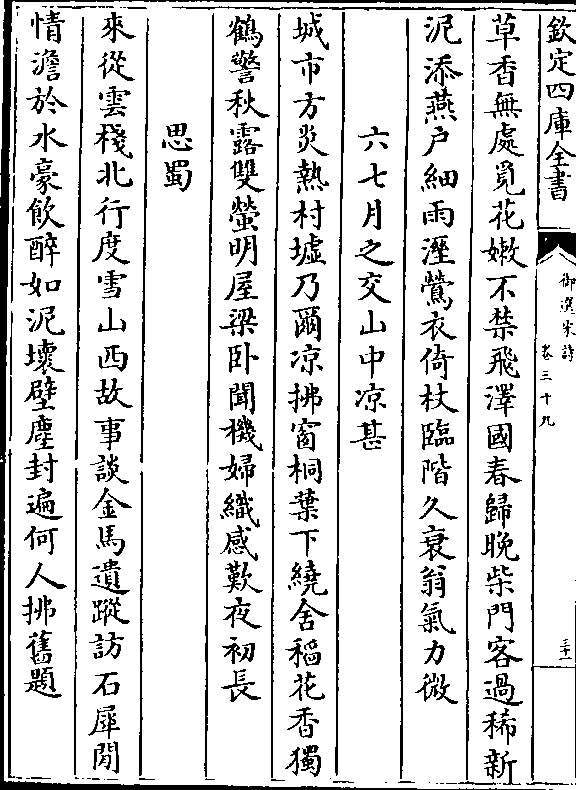 欽定四庫全書
御選宋詩
卷三十九
三十一
草香無處覓花嫩不禁飛澤國春歸晚柴門客過稀新
泥添燕户細雨溼鶯衣倚杖臨階久衰翁氣力微
六七月之交山中凉甚
城市方炎熱村墟乃爾凉拂窗桐葉下繞舍稻花香獨
鶴警秋露雙螢明屋梁卧聞機婦織感歎夜初長
思蜀
來從雲棧北行度雪山西故事談金馬遺蹤訪石犀閒
情澹於水豪飲醉如泥壞壁塵封遍何人拂舊題